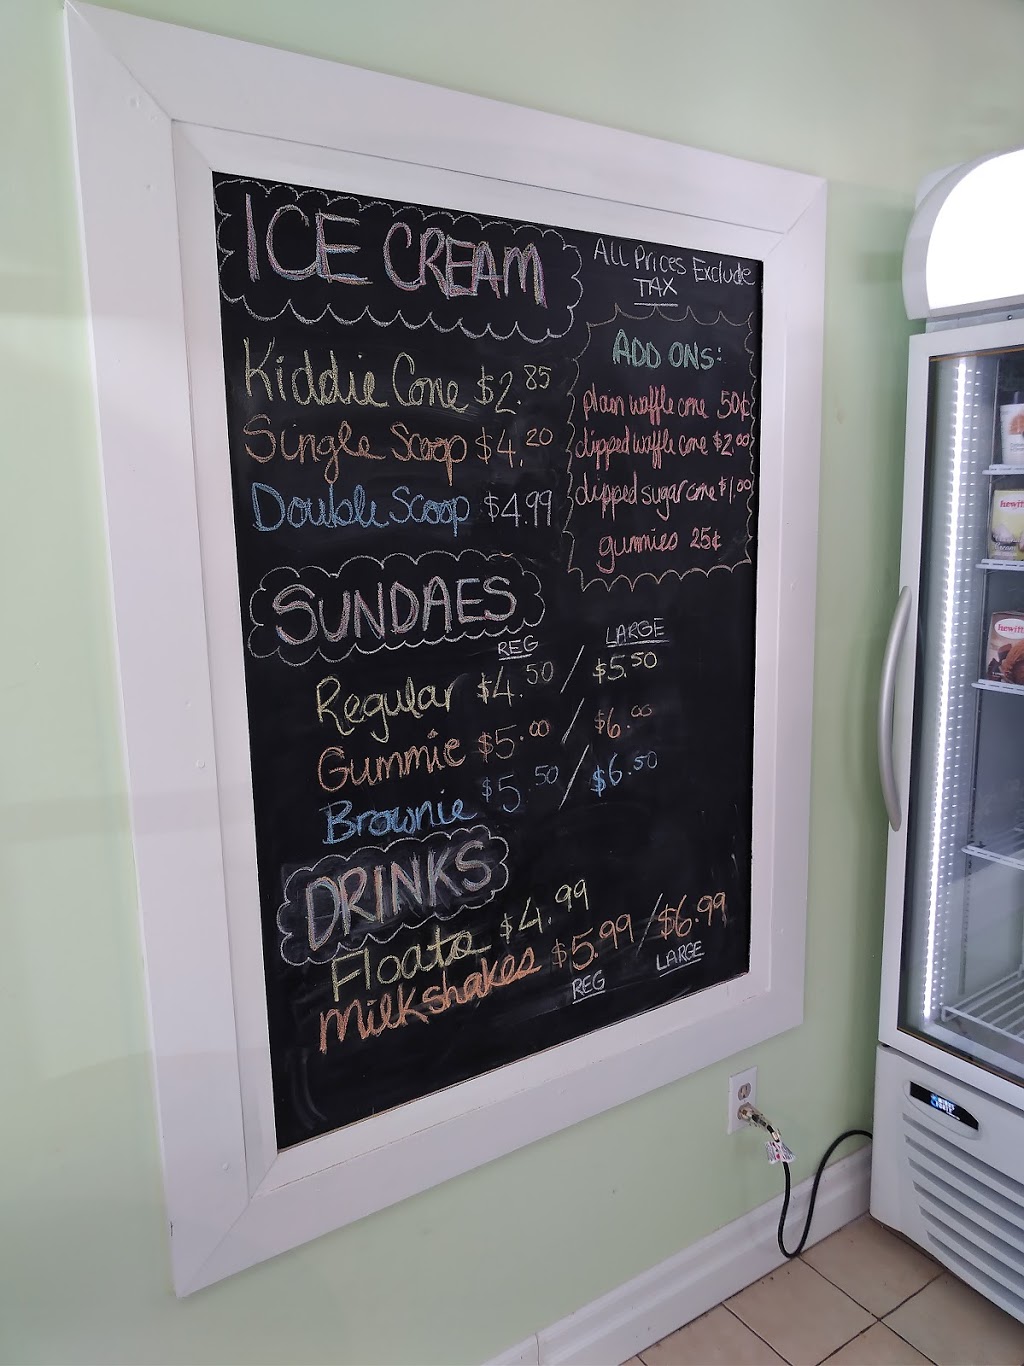 ICE CREAM
Kiddie Cone $2.85
Single Scoop $4.20
Double Scoop $4.99
All Prices Exclude
TAX
ADD ONS:
plain waffle cone 50¢
dipped waffle cone $2.00
dipped sugar cone $1.00
gummies 25¢
SUNDAES
REG LARGE
Regular $4.50 / $5.50
Gummie $5.00 / $6.00
Brownie $5.50 / $6.50
DRINKS
Floats $4.99
Milkshakes $5.99 / $6.99
REG LARGE